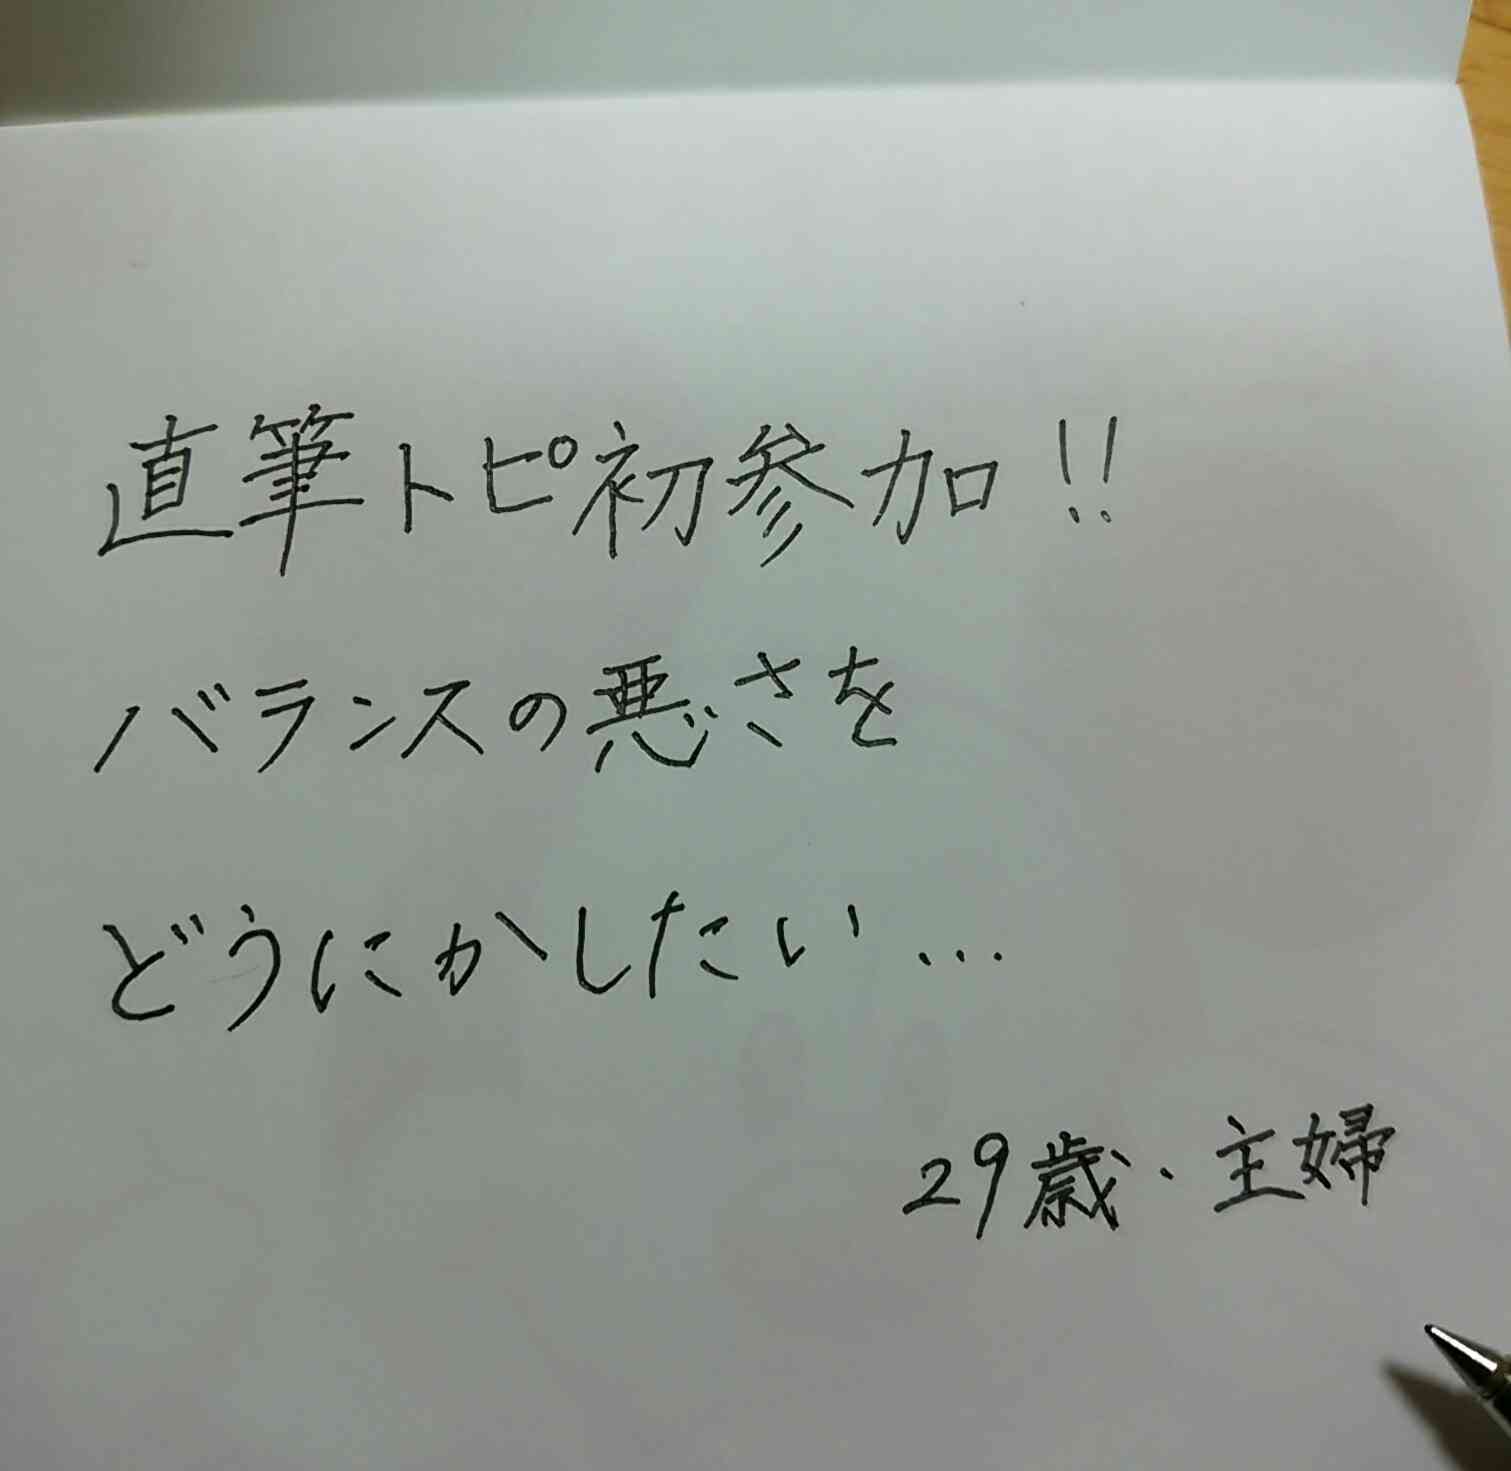 直筆トピ初参加!!
バランスの悪さを
どうにかしたい…
29歳・主婦